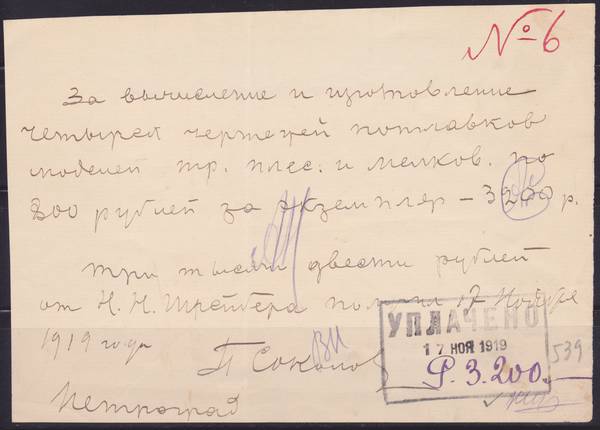 №6
За вычисление и изготовление
четырех чертежей поплавков
моделей тр. плес. и мелков. по
800 рублей за экземпляр – 3200 р.
три тысячи двести рублей
от Н. Н. Шрейбера получил 17 Ноября
1919 года
П Соколов
Петроград
УПЛАЧЕНО
17 НОЯ 1919
Р. 3.200.–
539